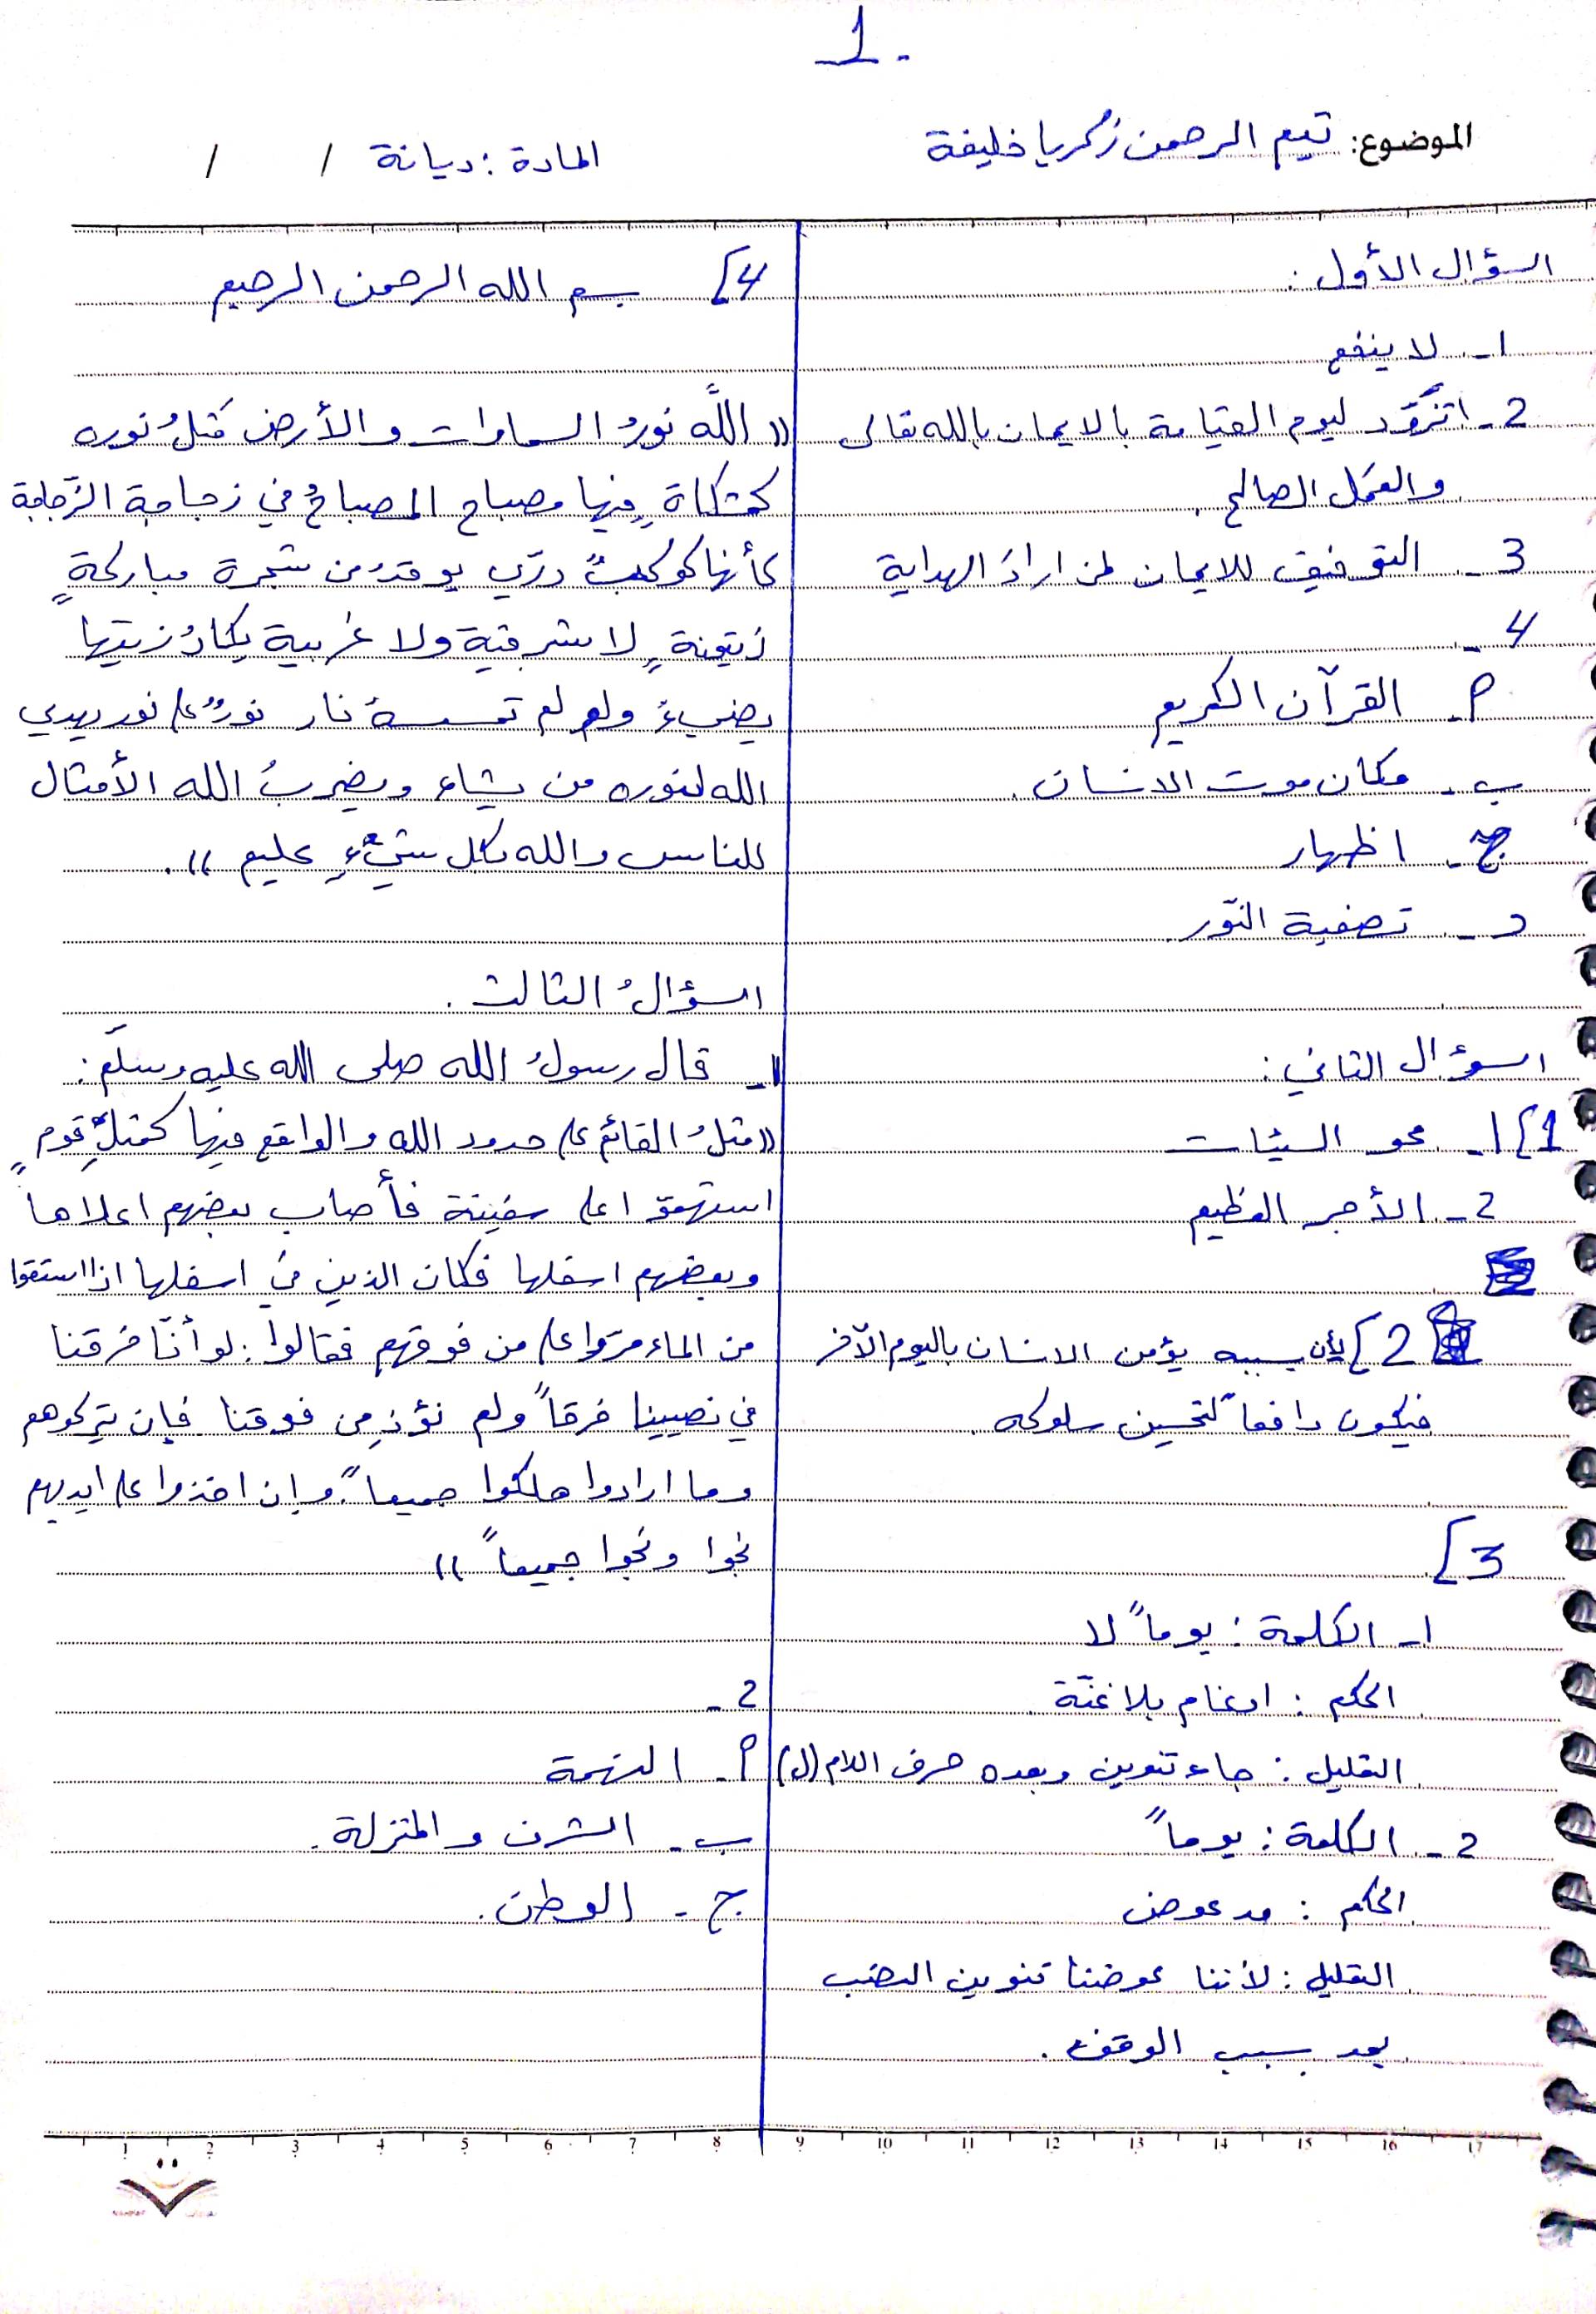 1.
الموضوع: تيم الرحمن زكريا خليفة
المادة: ديانة / /
السؤال الأول:
1- لا ينفع
2- اتزوّد ليوم القيامة بالايمان بالله تعالى
والعمل الصالح.
3- التوفيق للايمان لمن اراد الهداية
4-
م- القرآن الكريم
ب- مكان موت الانسان.
ج- اظهار
د- تصفية النّور
السؤال الثاني:
1] 1- محو السيئات
2- الأجر العظيم
2] لأن بسببه يؤمن الانسان باليوم الآخر
فيكون دافعاً لتحسين سلوكه.
3]
1- الكلمة: يوماً لا
الحكم: ادغام بلا غنّة
التعليل: جاء تنوين وبعده حرف اللام (ل)
2- الكلمة: يوماً
الحكم: مد عوض
التعليل: لأننا عوضنا تنوين النصب
بمد بسبب الوقف.
4] بسم الله الرحمن الرحيم
(( اللَّه نورُ السماوات والأرض مثلُ نوره
كمشكاةٍ فيها مصباح المصباحُ في زجاجة الزّجاجة
كأنها كوكبٌ درّي يوقدُ من شجرة مباركةٍ
زيتونةٍ لا شرقية ولا غربية يكادُ زيتها
يضيءُ ولو لم تمسسهُ نار نورٌ على نور يهدي
الله لنوره من يشاء ويضربُ الله الأمثال
للناس والله بكل شيءٍ عليم )).
السؤالُ الثالث.
1- قال رسولُ الله صلى الله عليه وسلّم:
((مثلُ القائم على حدود الله والواقع فيها كمثلِ قومٍ
استهموا على سفينة فأصاب بعضهم اعلاها
وبعضهم اسفلها فكان الذين في اسفلها اذا استقوا
من الماء مرّوا على من فوقهم فقالوا: لو أنّا خرقنا
في نصيبنا خرقاً ولم نؤذِ من فوقنا فإن يتركوهم
وما ارادوا هلكوا جميعاً وإن اخذوا على ايديهم
نجوا ونجوا جميعاً ))
2-
م- النهمة
ب- الشرف والمنزلة.
ج- الوطن.
1 2 3 4 5 6 7 8 9 10 11 12 13 14 15 16 17